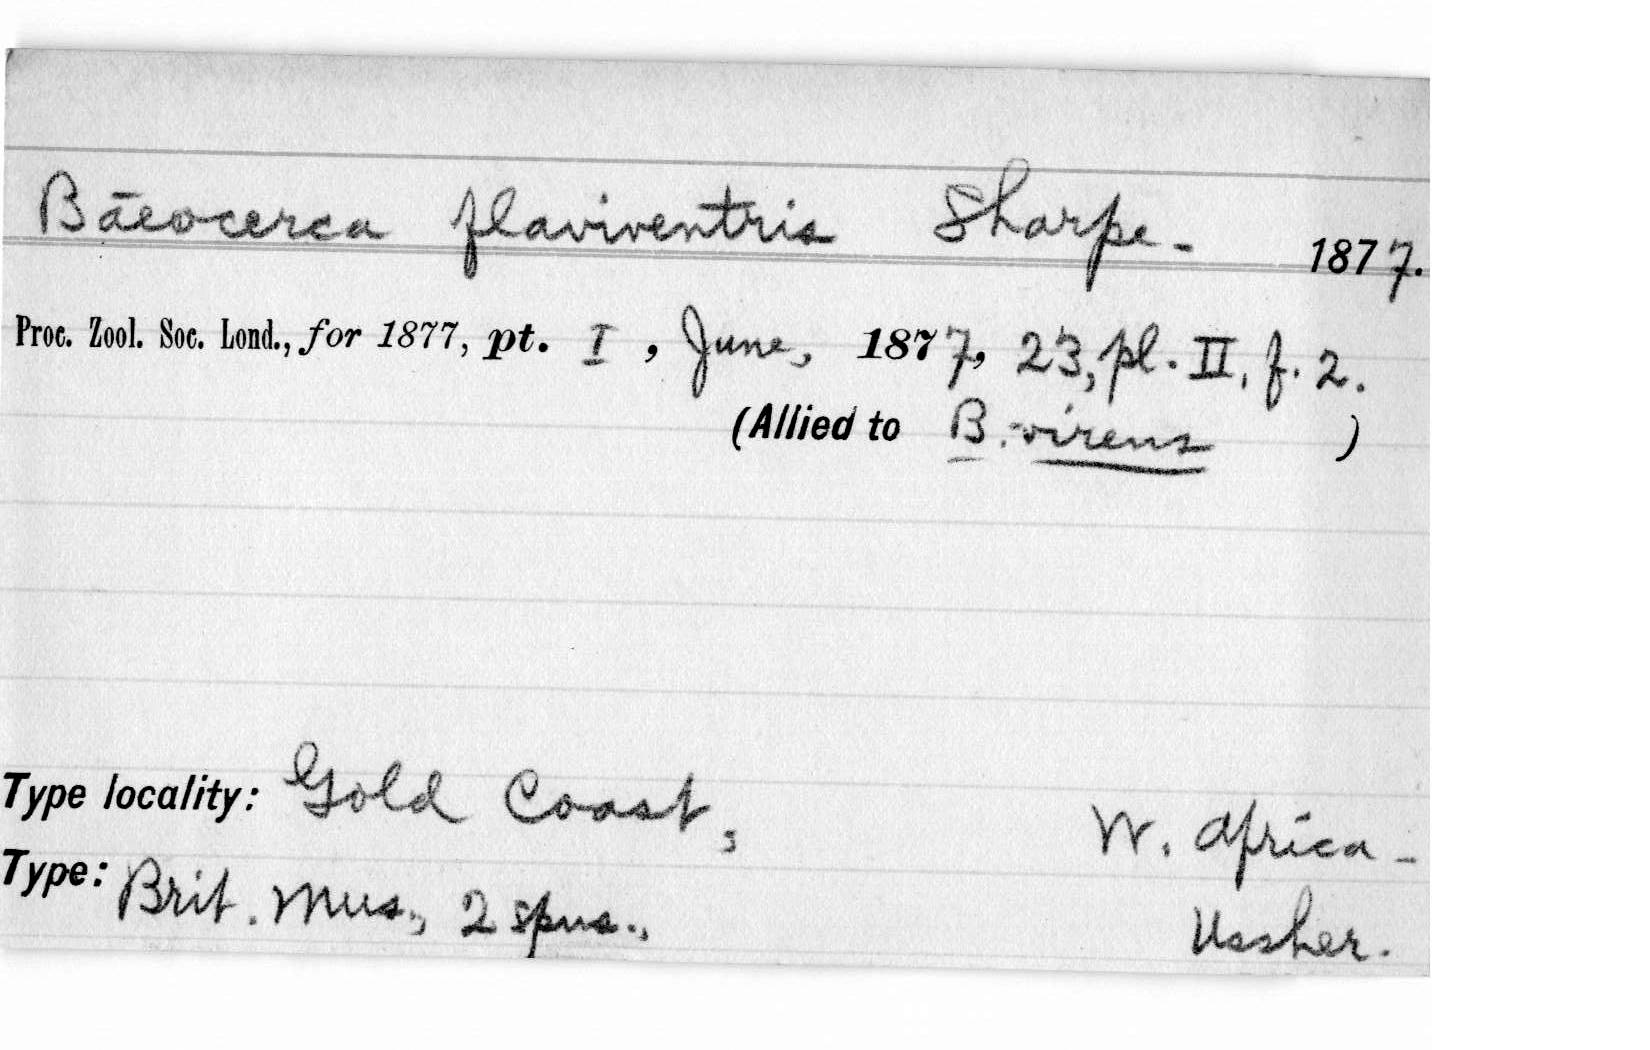 Bāeocerca flaviventris Sharpe- 1877.
Proc. Zool. Soc. Lond., for 1877, pt. I, June, 1877, 23, pl. II, f. 2.
(Allied to B. virens )
Type locality: Gold Coast, W. Africa-
Type: Brit. Mus., 2 spns., Ussher.